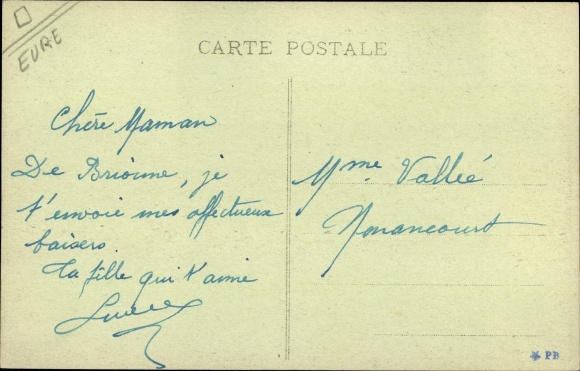 EURE
CARTE POSTALE
Chère Maman
De Brionne, je
t'envoie mes affectueux
baisers.
Ta fille qui t'aime
Mme Vallée
Nonancourt
PB